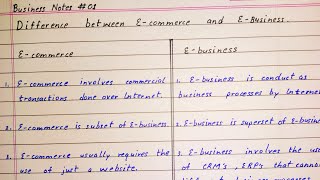 Business Notes #01
Difference between E-commerce and E-Business.
E-commerce
E-business
1. E-commerce involves commercial
transactions done over Internet.
2. E-commerce is subset of E-business.
3. E-commerce usually requires the
use of just a website.
1. E-business is conduct as
business processes by Interne
2. E-business is superset of E-busine
3. E-business involves the us
of CRM's, ERP's that conne